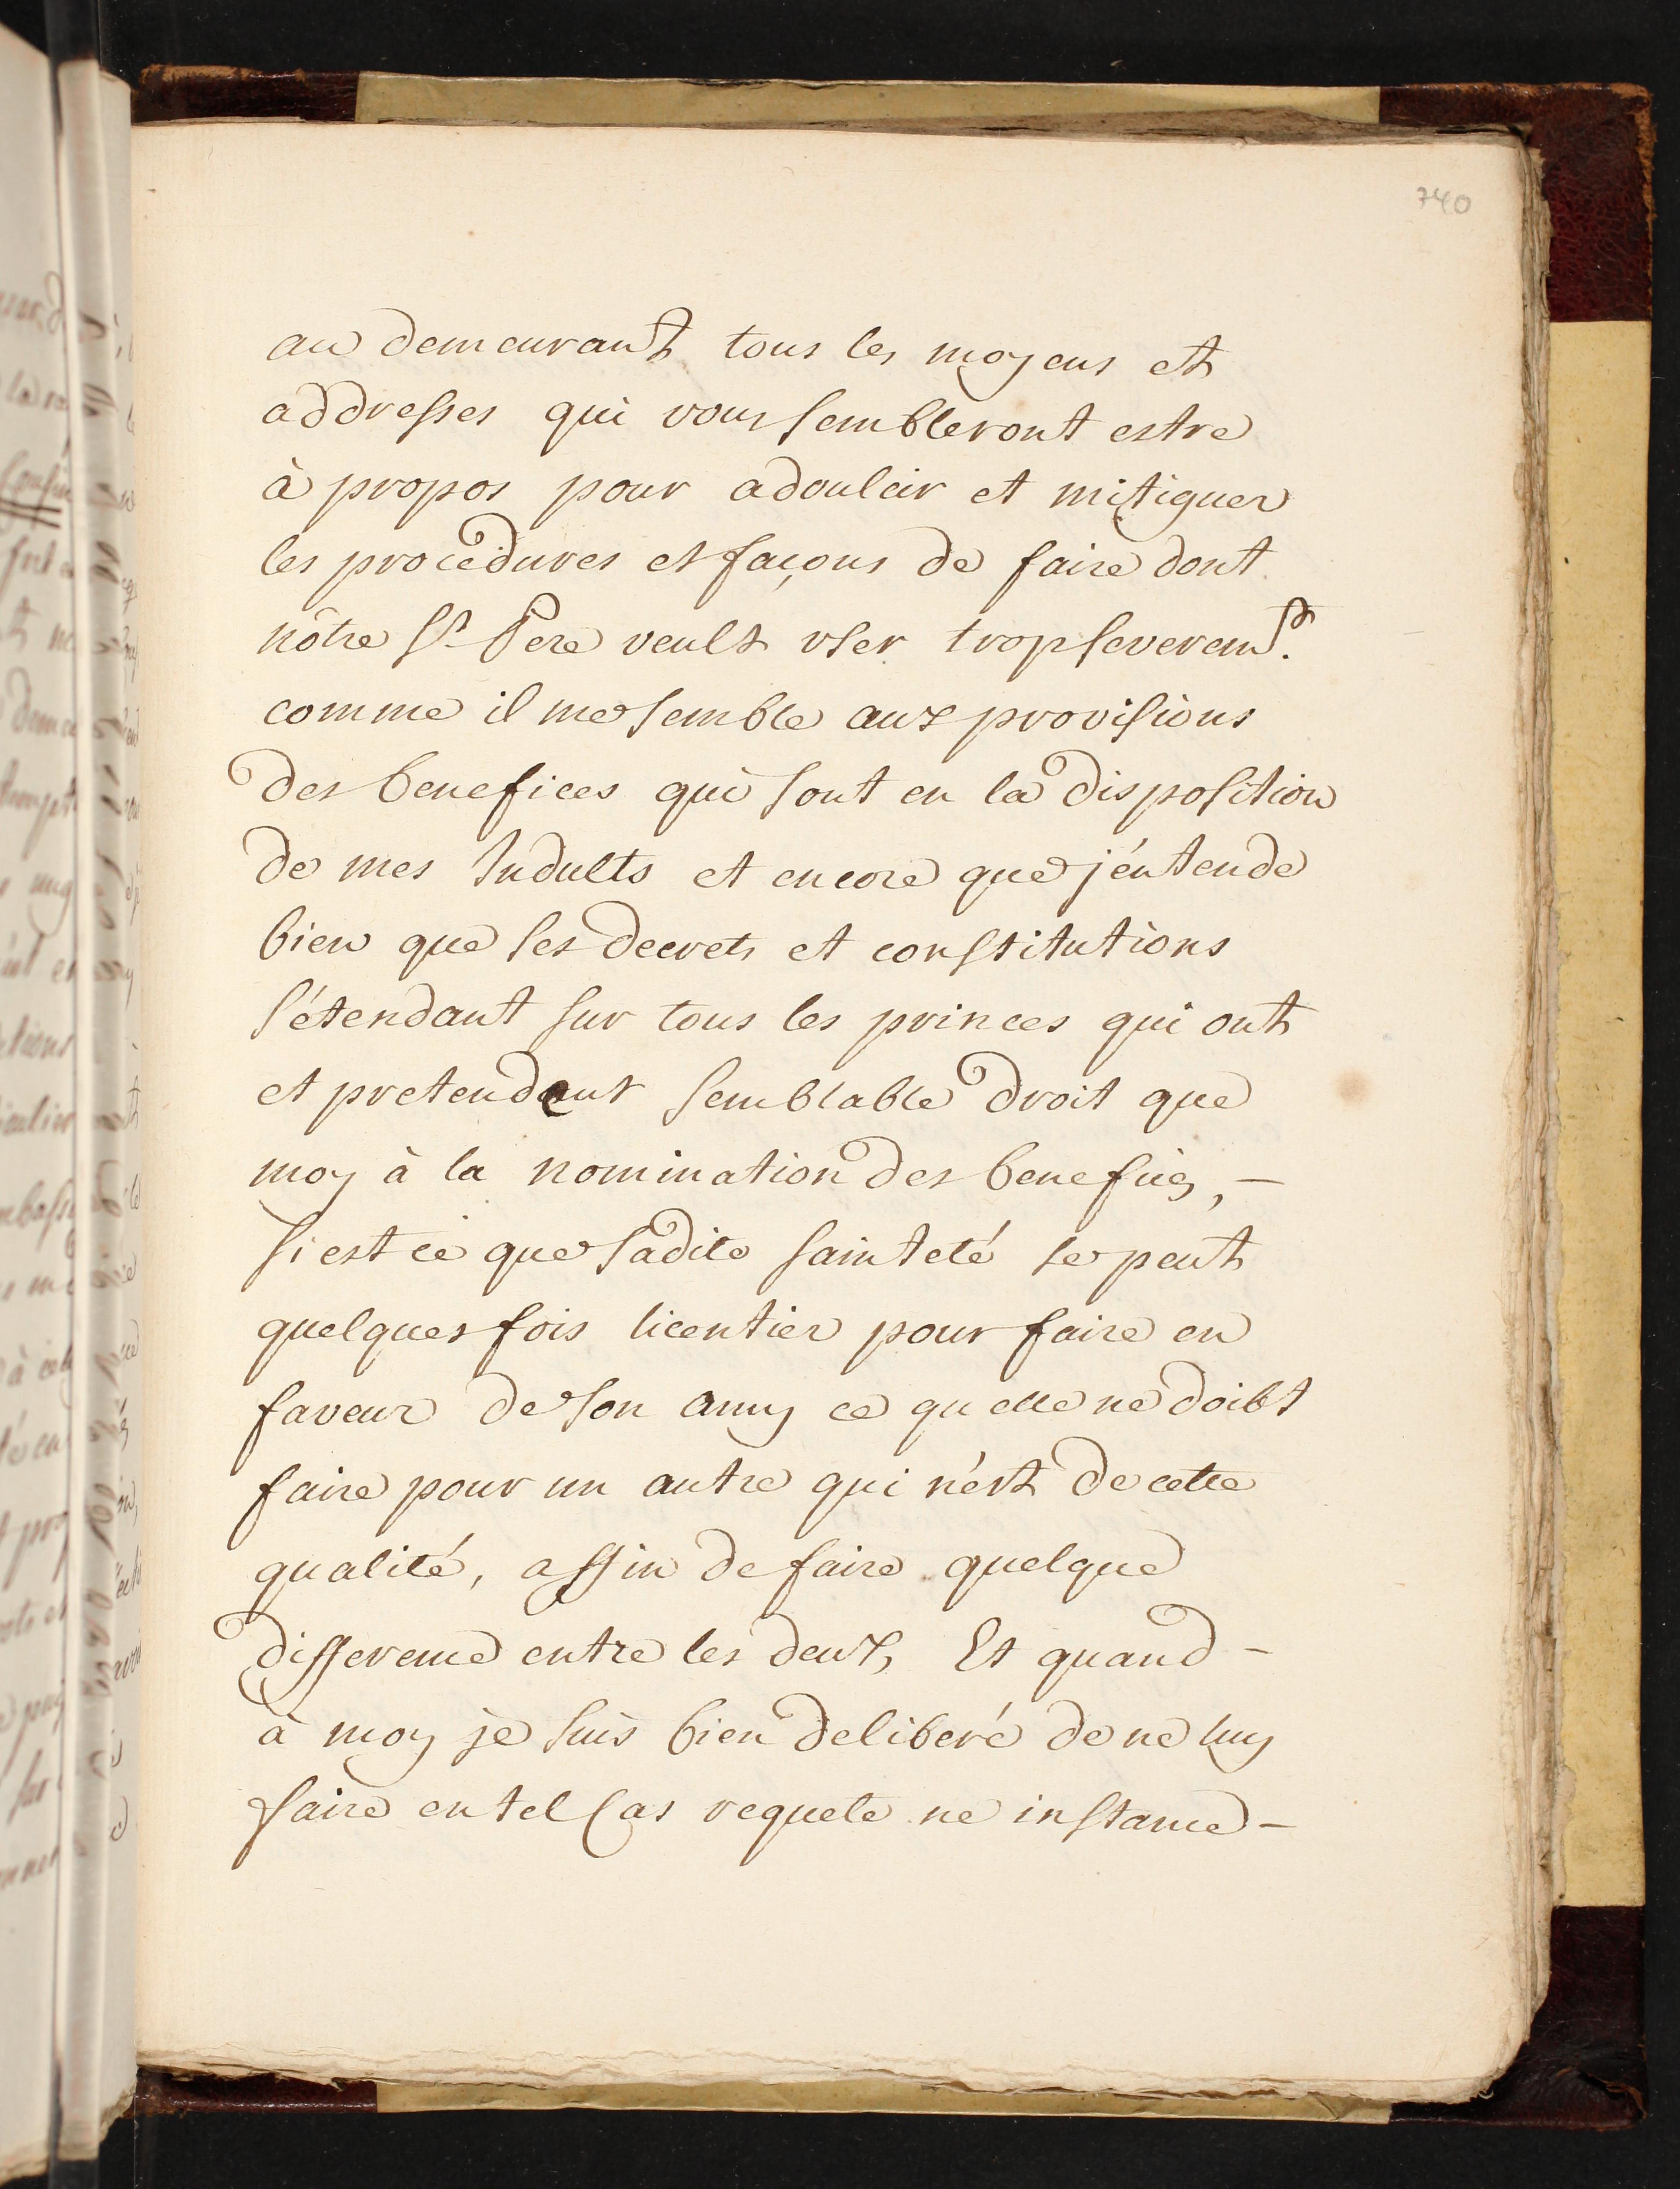 740
au demeurant tous les moyens et
addresses qui vous sembleront estre
à propos pour adoulcir et mitiguer
les procedures et façons de faire dont
nôtre St Pere veult user trop severemt.
comme il me semble aux provisions
des benefices qui sont en la disposition
de mes Indults et encore que j'éntende
bien que ses decrets et constitutions
s'étendant sur tous les princes qui ont
et pretendent semblable droit que
moy à la nomination des benefices, -
si est ce que sadite sainteté se peut
quelques fois licentier pour faire en
faveur de son amy ce qu elle ne doibt
faire pour un autre qui n'ést de cette
qualité, affin de faire quelque
difference entre les deux, Et quand -
à moy je suis bien deliberé de ne luy
faire en tel Cas requete ne instance -